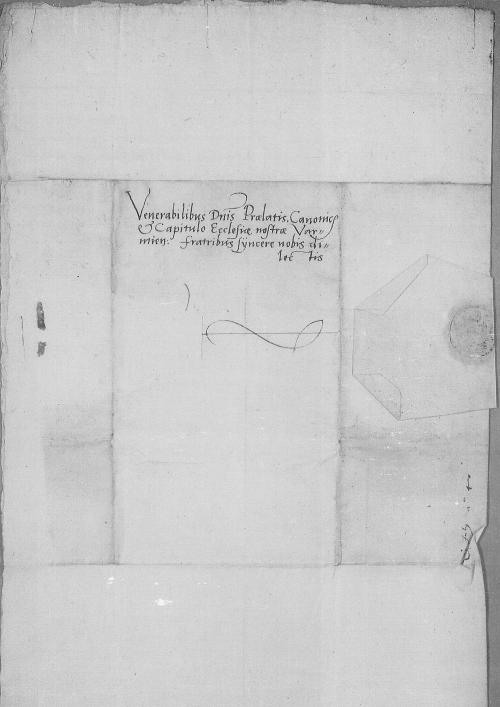 Venerabilibus Dnis Prælatis, Canonicis
& Capitulo Ecclesiæ nostræ Var=
mien: fratribus syncere nobis di=
lectis